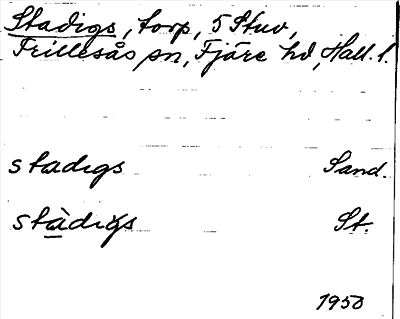 Stadigs, torp, 5 Stuv,
Frillesås sn, Fjäre hd, Hall. l.
stadigs Sand.
stàdigs St.
1950